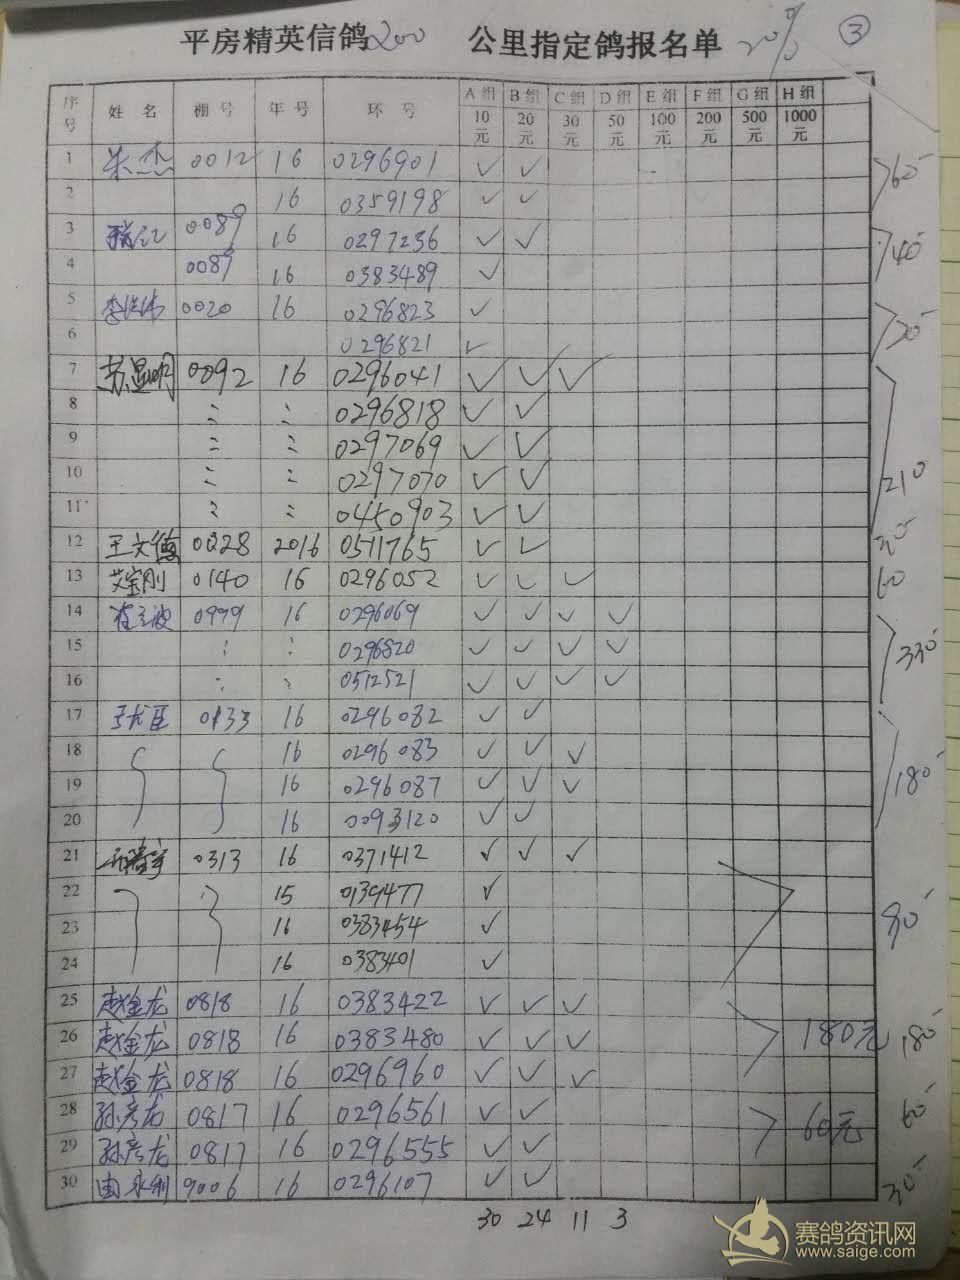 平房精英信鸽200 公里指定鸽报名单 20% ③
序号 姓名 棚号 年号 环号 A组 10元 B组 20元 C组 30元 D组 50元 E组 100元 F组 200元 G组 500元 H组 1000元
1 朱杰 0012 16 0296901 ✓ ✓ 60
2 16 0359198 ✓ ✓
3 0089 16 0297236 ✓ ✓ 40
4 0089 16 0383489 ✓
5 0020 16 0296823 ✓ 20
6 0296821 ✓
7 苏显明 0092 16 0296041 ✓ ✓ ✓
8 〃 〃 0296818 ✓ ✓
9 〃 〃 0297069 ✓ ✓
10 〃 〃 0297070 ✓ ✓ 210
11 〃 〃 0450903 ✓ ✓
12 王文德 0028 2016 0511765 ✓ ✓ 30
13 艾宝刚 0140 16 0296052 ✓ ✓ ✓ 60
14 0999 16 0296069 ✓ ✓ ✓ ✓
15 〃 〃 0296820 ✓ ✓ ✓ ✓ 330
16 〃 〃 0512521 ✓ ✓ ✓ ✓
17 0133 16 0296082 ✓ ✓
18 16 0296083 ✓ ✓ ✓
19 16 0296087 ✓ ✓ ✓ 180
20 16 0093120 ✓ ✓
21 0313 16 0371412 ✓ ✓ ✓
22 15 0139477 ✓
23 16 0383454 ✓ 90
24 16 0383401 ✓
25 赵金龙 0818 16 0383422 ✓ ✓ ✓
26 赵金龙 0818 16 0383480 ✓ ✓ ✓ 180元 180
27 赵金龙 0818 16 0296960 ✓ ✓ ✓
28 孙彦龙 0817 16 0296561 ✓ ✓ 60元 60
29 孙彦龙 0817 16 0296555 ✓ ✓
30 由永利 9006 16 0296107 ✓ ✓ 30
30 24 11 3
赛鸽资讯网
www.saige.com